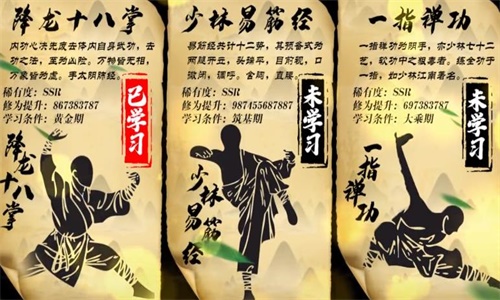 降龙十八掌
内功心法无废去阵内自身武功，去
功之法，至刚山险。万特皆无相，
万象皆为虚。手太阴肺经。
稀有度：SSR
修为提升：867383787
学习条件：黄金期
已学习
降龙十八掌
少林易筋经
易筋经共计十二势，其预备式为
两腿开立，头端平，目前视，口
微闭，调呼。含胸，直腰。
稀有度：SSR
修为提升：987455687887
学习条件：筑基期
未学习
少林易筋经
一指禅功
一指禅功为阴手，亦少林七十二
艺，软功中之服毒者。练全功于
一指，如少林江南著名。
稀有度：SSR
修为提升：697383787
学习条件：大乘期
未学习
一指禅功